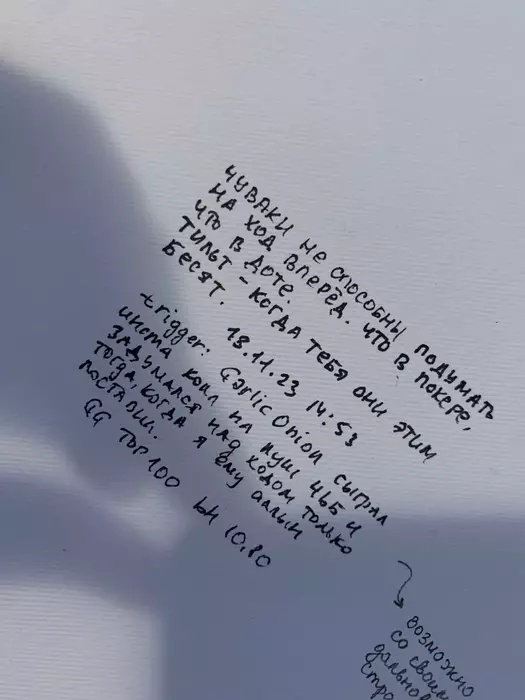 ЧУВАКИ НЕ СПОСОБНЫ ПОДУМАТЬ
НА ХОД ВПЕРЁД. ЧТО В ПОКЕРЕ,
ЧТО В ДОТЕ.
ТИЛЬТ - КОГДА ТЕБЯ ОНИ ЭТИМ
БЕСЯТ.
18.11.23 14:53
trigger: Garlic Onion СЫГРАЛ
ИНСТА КОЛЛ НА ПУШ 4Б5 И
ЗАДУМАЛСЯ НАД ХОДОМ ТОЛЬКО
ТОГДА, КОГДА Я ЕМУ АЛЛЫН
ПОСТАВИЛ.
GG TOP 100 БИ 10,80
ВОЗМОЖНО
СО СВОИМ